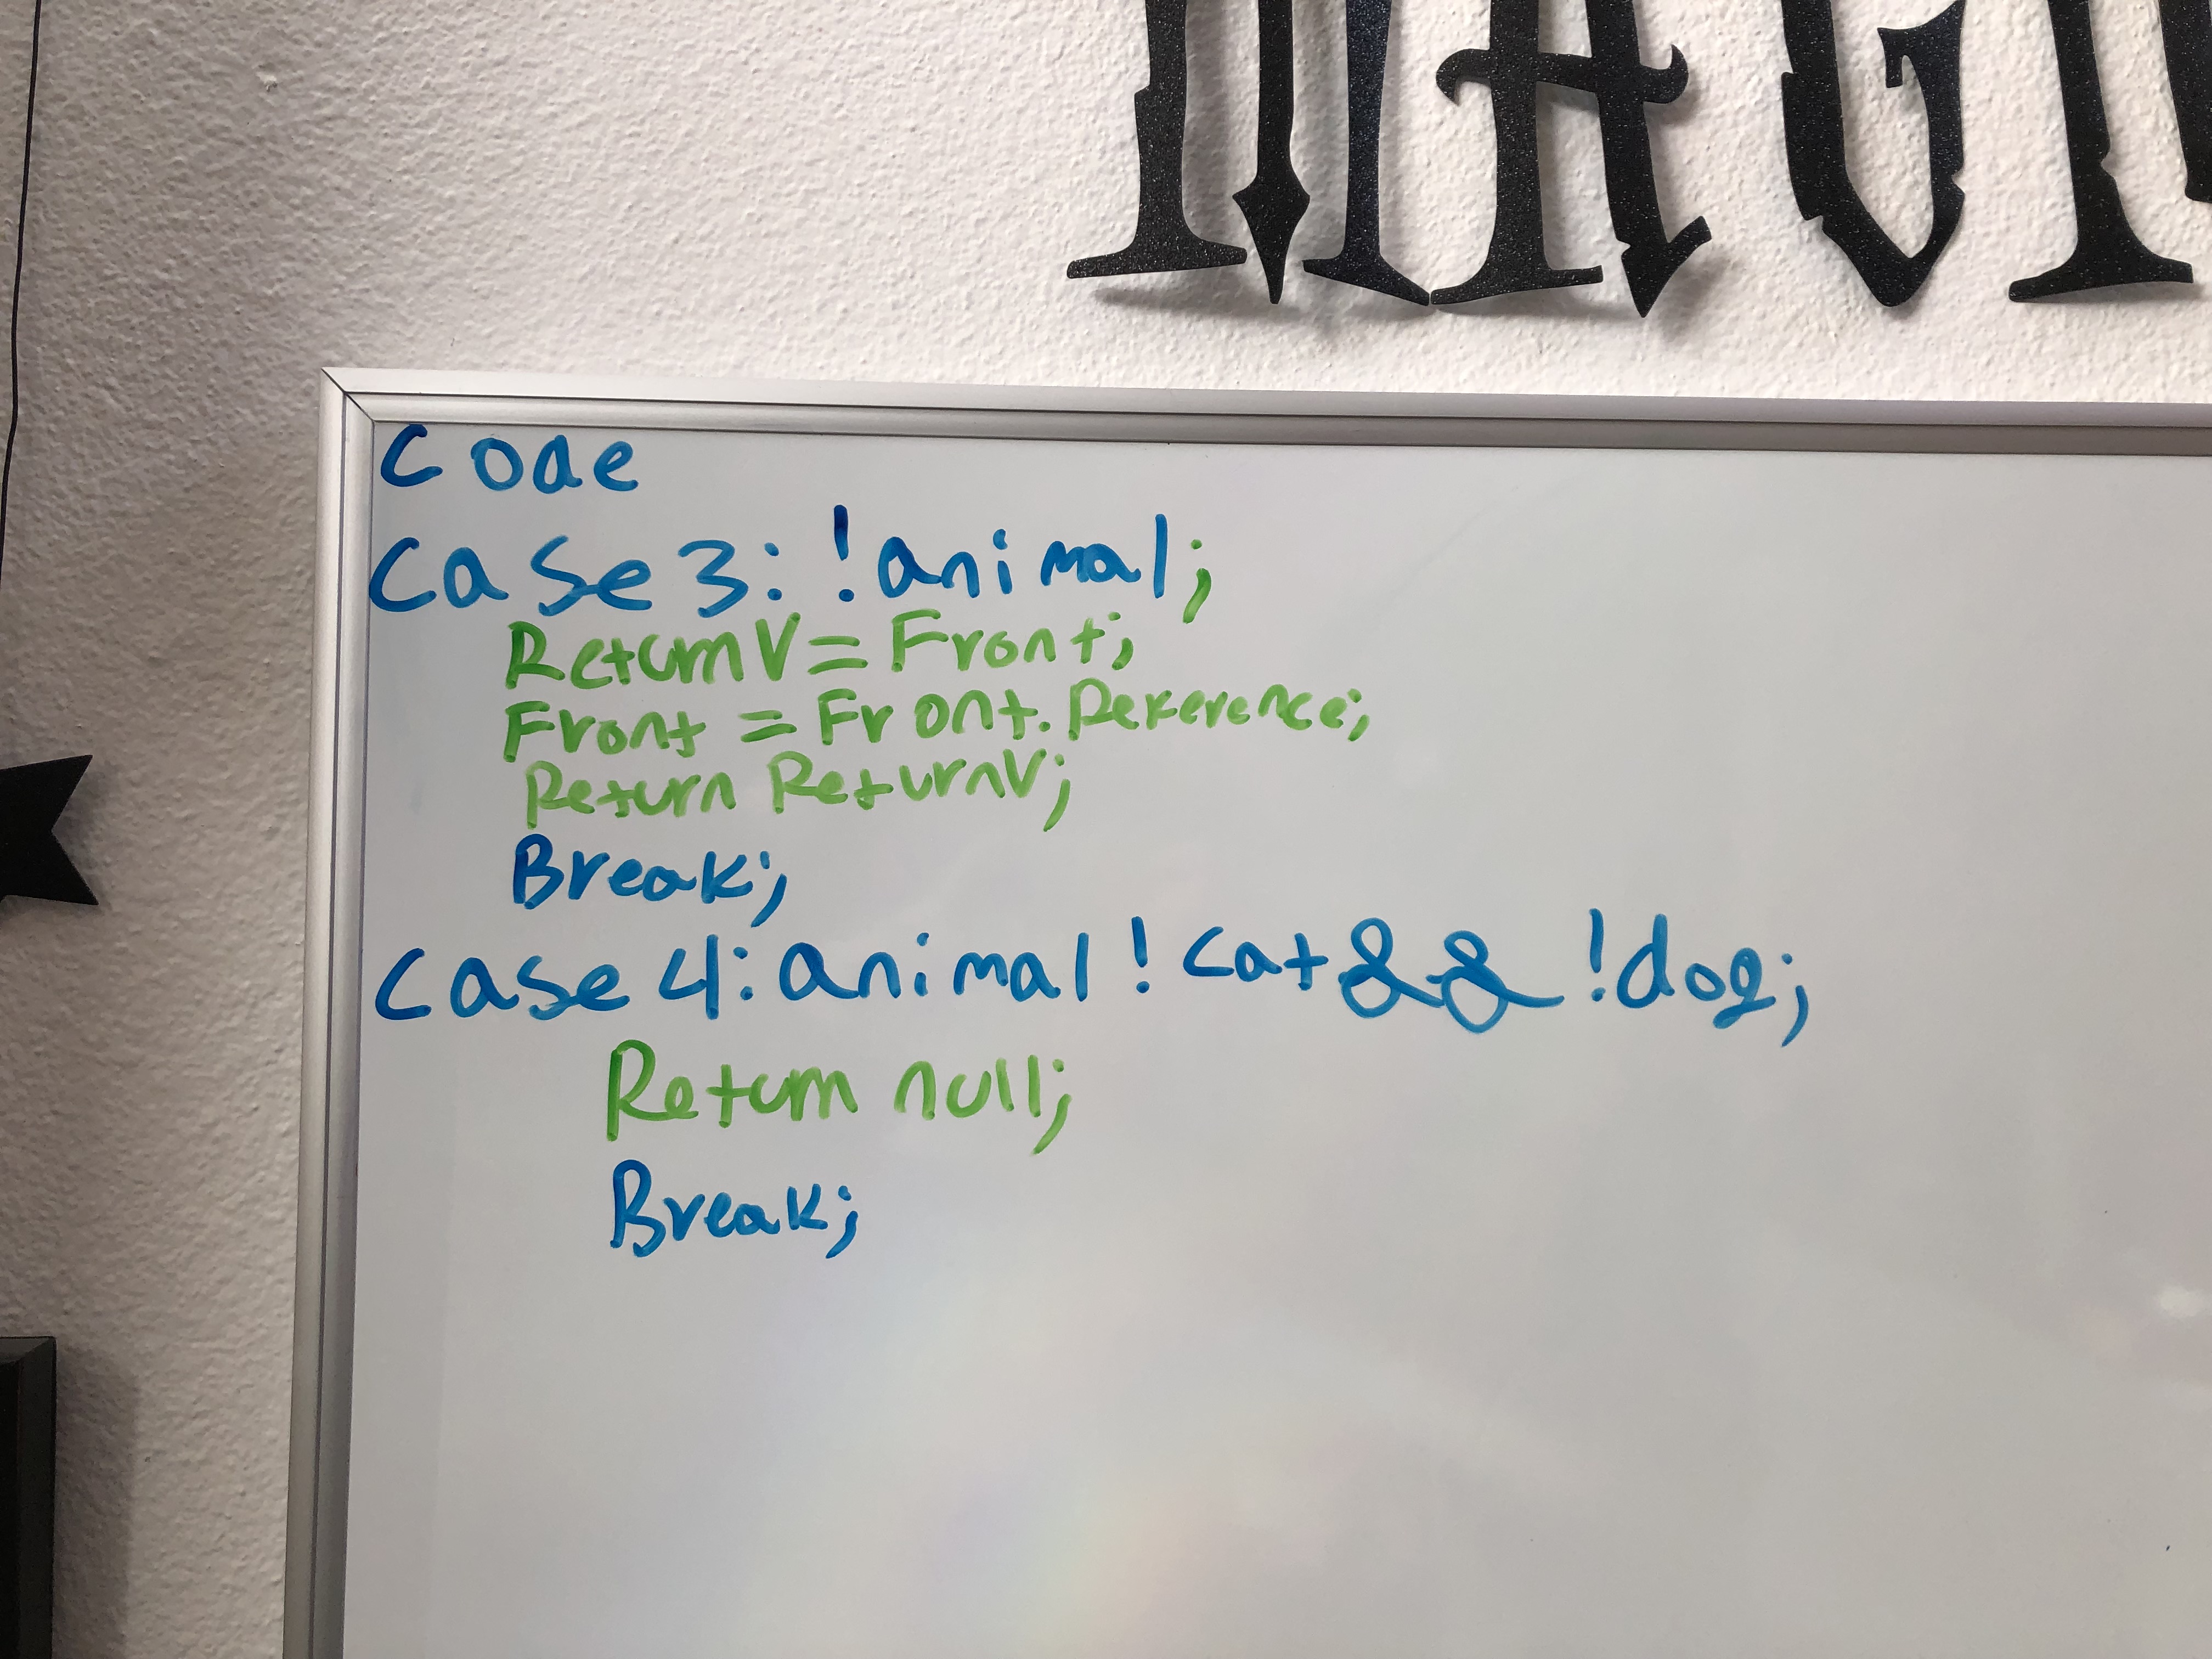 MAGI
Code
Case 3: !animal;
ReturnV = Front;
Front = Front.Dereference;
Return ReturnV;
Break;
Case 4: animal !cat && !dog;
Return null;
Break;